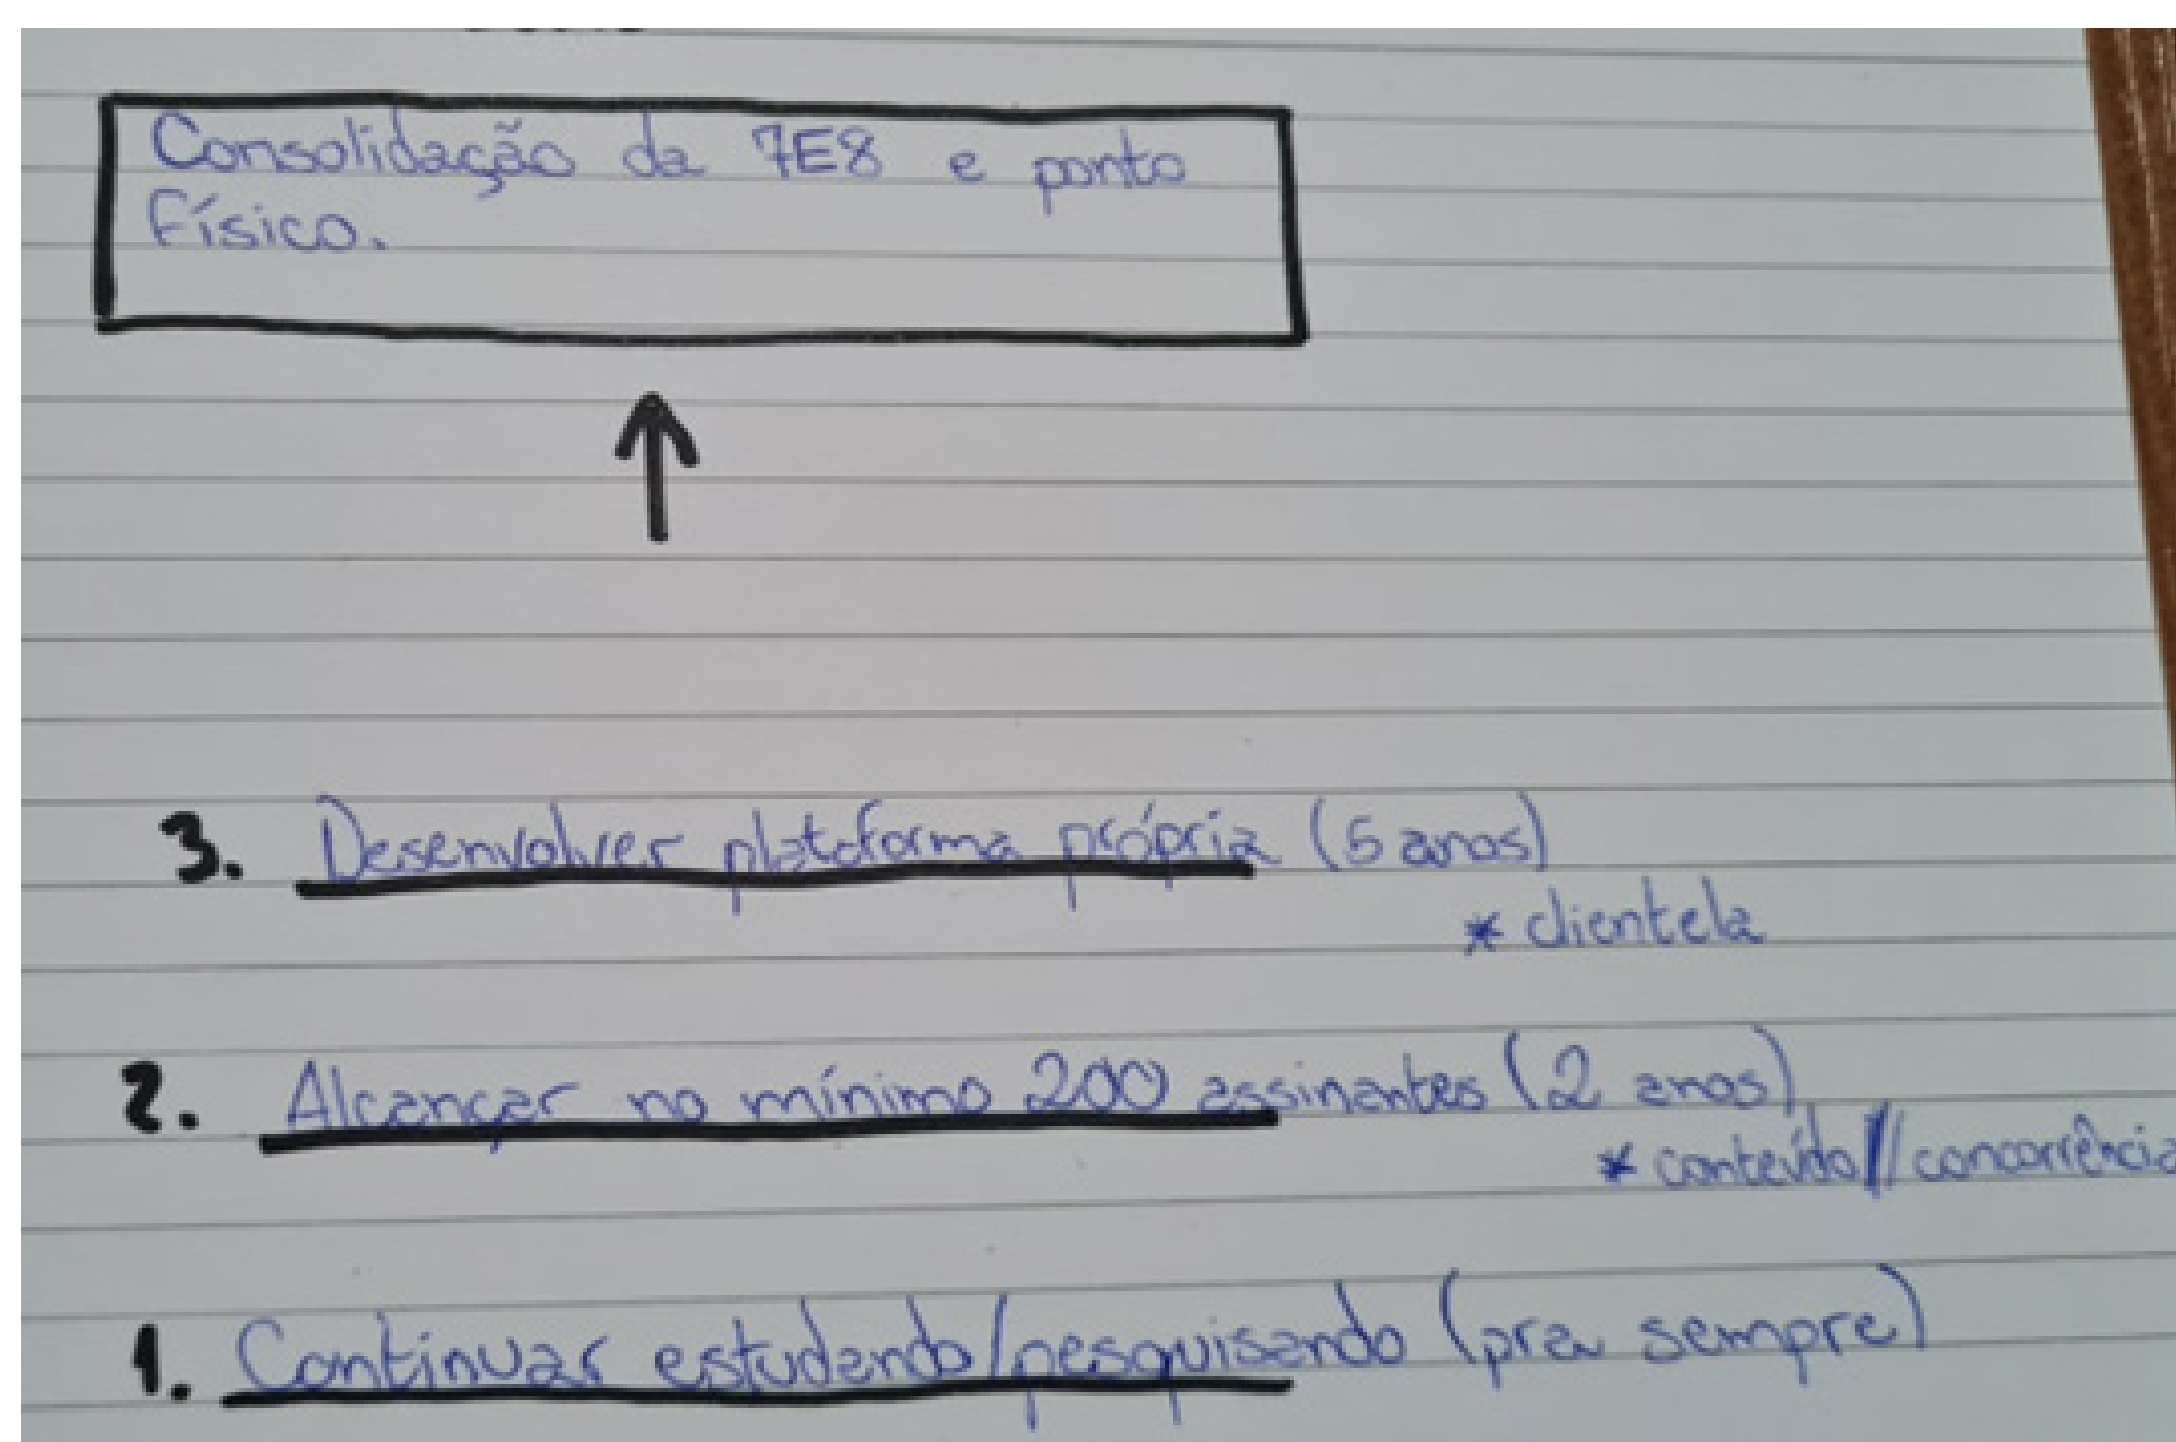 Consolidação da 7E8 e ponto
físico.
3. Desenvolver plataforma própria (5 anos)
* clientela
2. Alcançar no mínimo 200 assinantes (2 anos)
* conteúdo // concorrência
1. Continuar estudando/pesquisando (pra sempre)